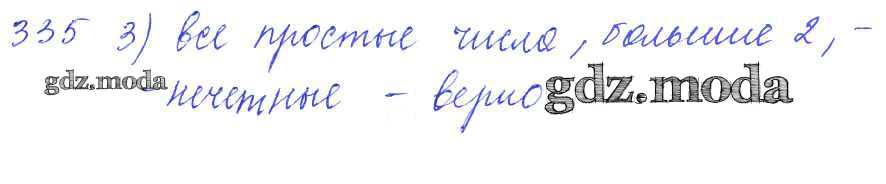 335 3) все простые числа, большие 2, -
gdz.moda
- нечетные - верно
gdz.moda